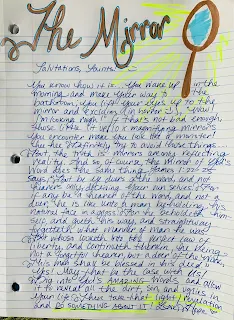 The Mirror
Salutations, Saints!
You know how it is. You wake up in the
morning and make your way to the
bathroom, you lift your eyes up to the
mirror and exclaim (in horror) "Wow! I
look rough!" If that's not bad enough,
those little lit up magnifying mirrors
you encounter make you look like a monster!
She has definitely to avoid those things.
But, the truth is, mirrors always reflect
reality. And so, of course, the Mirror of God's
Word does the same thing. James 1:22-25
Says, "But be ye doers of the word, and not
hearers only, deceiving your own selves. For
if any be a hearer of the word, and not a
doer, he is like unto a man beholding his
natural face in a glass: For he beholdeth him-
self, and goeth his way, and straightway
forgetteth what manner of man he was.
But whoso looketh into the perfect law of
liberty, and continueth therein, he being
not a forgetful hearer, but a doer of the work,
this man shall be blessed in his deed."
Yes! May that be the case with us!
Dig into God's AMAZING Word, and allow
it to reveal all the dirt, sin, and ugliness in
Your life. Then take that light/revelation
and DO SOMETHING ABOUT IT!